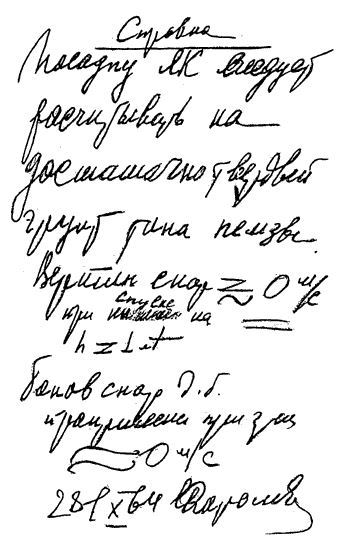 Справка
Посадку ЛК следует
рассчитывать на
достаточно твердый
грунт типа пемзы.
Вертик скор ≈ 0 м/с
при спуске на
h = 1 м
Боков скор д.б.
≈ 0 м/с
28/X 64 Королев